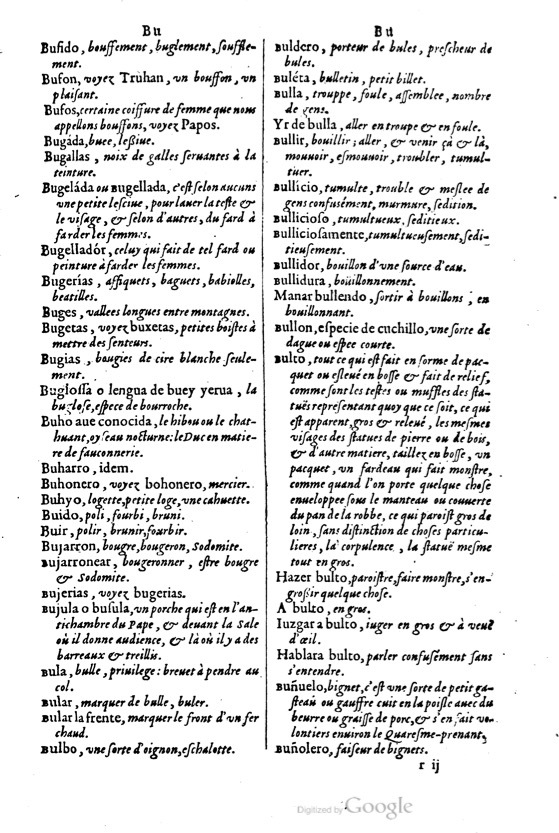 Bu
Bufido, bouffement, buglement, souffle-
ment.
Bufon, voyez Truhan, vn bouffon, vn
plaisant.
Bufos, certaine coiffure de femme que nous
appellons bouffons, voyez Papos.
Bugáda, buee, lessiue.
Bugallas, noix de galles seruantes à la
teinture.
Bugeláda ou Bugellada, c'est selon aucuns
vne petite lesciue, pour lauer la teste &
le visage, & selon d'autres, du fard à
farder les femmes.
Bugelladór, celuy qui fait de tel fard ou
peinture à farder les femmes.
Bugerías, affiquets, baguets, babiolles,
beatilles.
Buges, vallees longues entre montagnes.
Bugetas, voyez buxetas, petites boistes à
mettre des senteurs.
Bugias, bougies de cire blanche seule-
ment.
Buglossa o lengua de buey yerua, la
buglose, espece de bourroche.
Buho aue conocida, le hibou ou le chat-
huant, oyseau nocturne: le Duc en matie-
re de fauconnerie.
Buharro, idem.
Buhonero, voyez bohonero, mercier.
Buhyo, logette, petite loge, vne cahuette.
Buido, poli, fourbi, bruni.
Buir, polir, brunir, fourbir.
Bujarron, bougre, bougeron, Sodomite.
Bujarronear, bougeronner, estre bougre
& Sodomite.
Bujerias, voyez bugerias.
Bujula o busula, vn porche qui est en l'an-
tichambre du Pape, & deuant la Sale
où il donne audience, & là où il y a des
barreaux & treillis.
Bula, bulle, priuilege: breuet à pendre au
col.
Bular, marquer de bulle, buler.
Bular la frente, marquer le front d'vn fer
chaud.
Bulbo, vne sorte d'oignon, eschalotte.
Bu
Buldero, porteur de bules, prescheur de
bules.
Buléta, bulletin, petit billet.
Bulla, trouppe, foule, assemblee, nombre
de gens.
Yr de bulla, aller en troupe & en foule.
Bullir, bouillir; aller, & venir çà & là,
mouuoir, esmouuoir, troubler, tumul-
tuer.
Bullicio, tumulte, trouble & meslee de
gens confusément, murmure, sedition.
Bullicioso, tumultueux, seditieux.
Bulliciosamente, tumultueusement, sedi-
tieusement.
Bullidor, bouillon d'vne source d'eau.
Bullidura, boüillonnement.
Manar bullendo, sortir à bouillons, en
bouillonnant.
Bullon, especie de cuchillo, vne sorte de
dague ou espee courte.
Bulto, tout ce qui est fait en forme de pac-
quet ou esleué en bosse & fait de relief,
comme sont les testes ou muffles des sta-
tuës representant quoy que ce soit, ce qui
est apparent, gros & releué, les mesmes
visages des statues de pierre ou de bois,
& d'autre matiere, taillez en bosse, vn
pacquet, vn fardeau qui fait monstre,
comme quand l'on porte quelque chose
enueloppee sous le manteau ou couuerte
du pan de la robbe, ce qui paroist gros de
loin, sans distinction de choses particu-
lieres, la corpulence, la statuë mesme
tout en gros.
Hazer bulto, paroistre, faire monstre, s'en-
grossir quelque chose.
A bulto, en gros.
Iuzgar a bulto, iuger en gros & à veuë
d'œil.
Hablar a bulto, parler confusément sans
s'entendre.
Buñuelo, bignet, c'est vne sorte de petit ga-
steau ou gauffre cuit en la poisle auec du
beurre ou graisse de porc, & s'en fait vo-
lontiers enuiron le Quaresme-prenant,
Buñolero, faiseur de bignets.
r ij
Digitized by Google